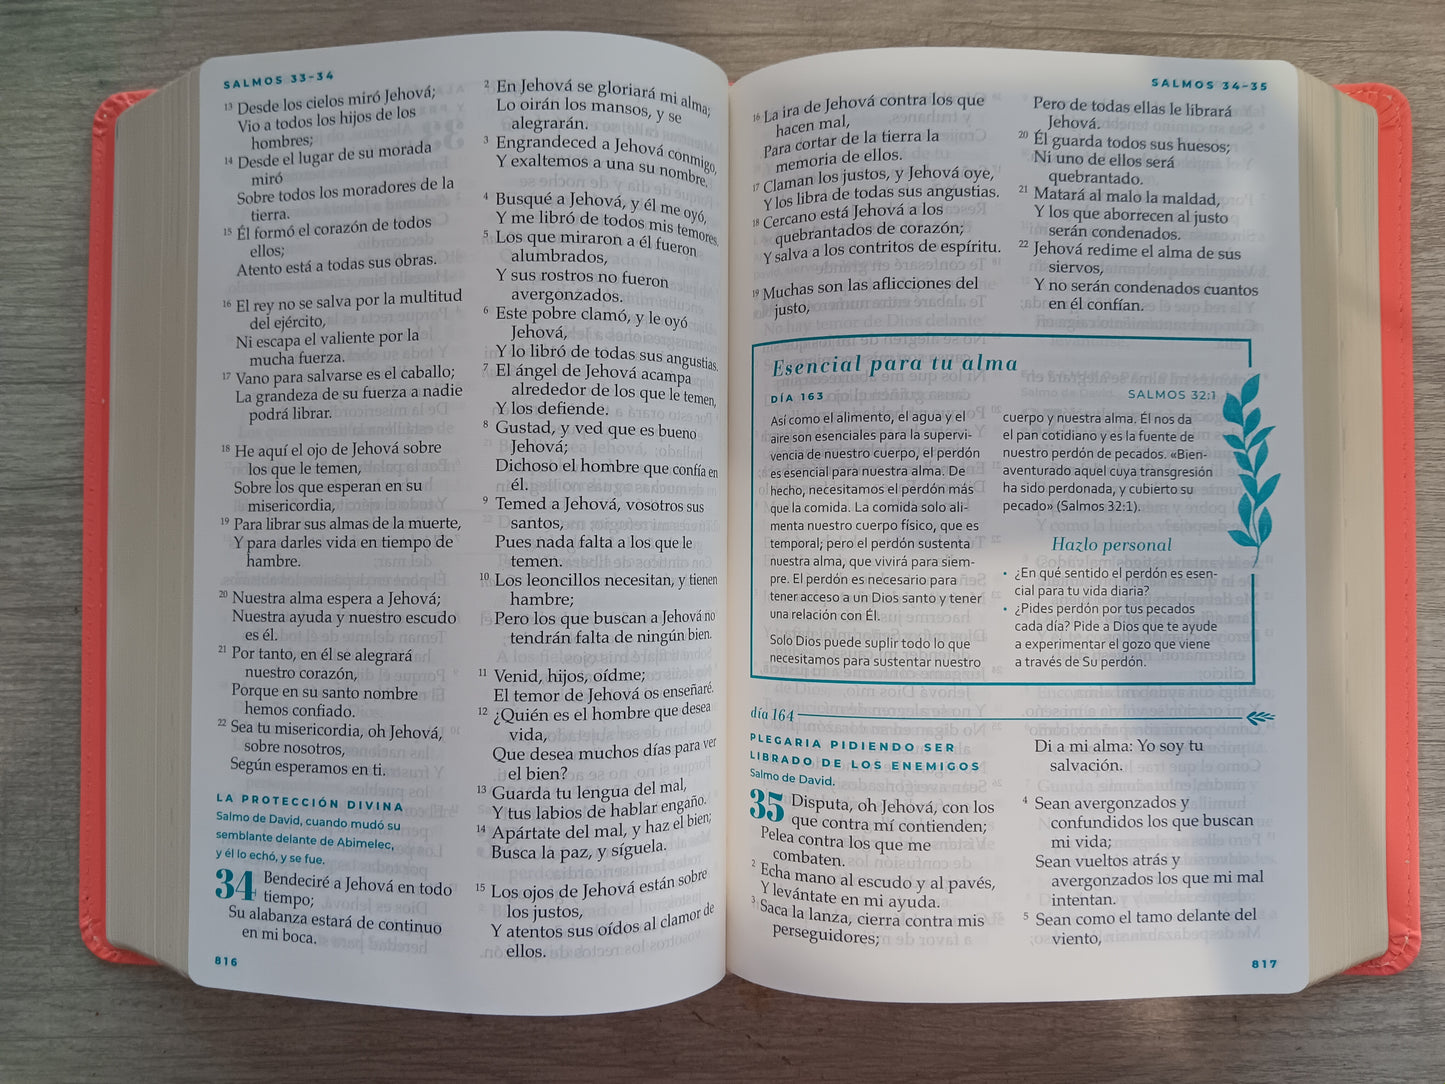 SALMOS 33–34
13 Desde los cielos miró Jehová;
Vio a todos los hijos de los
hombres;
14 Desde el lugar de su morada
miró
Sobre todos los moradores de la
tierra.
15 Él formó el corazón de todos
ellos;
Atento está a todas sus obras.
16 El rey no se salva por la multitud
del ejército,
Ni escapa el valiente por la
mucha fuerza.
17 Vano para salvarse es el caballo;
La grandeza de su fuerza a nadie
podrá librar.
18 He aquí el ojo de Jehová sobre
los que le temen,
Sobre los que esperan en su
misericordia,
19 Para librar sus almas de la muerte,
Y para darles vida en tiempo de
hambre.
20 Nuestra alma espera a Jehová;
Nuestra ayuda y nuestro escudo
es él.
21 Por tanto, en él se alegrará
nuestro corazón,
Porque en su santo nombre
hemos confiado.
22 Sea tu misericordia, oh Jehová,
sobre nosotros,
Según esperamos en ti.
LA PROTECCIÓN DIVINA
Salmo de David, cuando mudó su
semblante delante de Abimelec,
y él lo echó, y se fue.
34 Bendeciré a Jehová en todo
tiempo;
Su alabanza estará de continuo
en mi boca.
816
2 En Jehová se gloriará mi alma;
Lo oirán los mansos, y se
alegrarán.
3 Engrandeced a Jehová conmigo,
Y exaltemos a una su nombre.
4 Busqué a Jehová, y él me oyó,
Y me libró de todos mis temores.
5 Los que miraron a él fueron
alumbrados,
Y sus rostros no fueron
avergonzados.
6 Este pobre clamó, y le oyó
Jehová,
Y lo libró de todas sus angustias.
7 El ángel de Jehová acampa
alrededor de los que le temen,
Y los defiende.
8 Gustad, y ved que es bueno
Jehová;
Dichoso el hombre que confía en
él.
9 Temed a Jehová, vosotros sus
santos,
Pues nada falta a los que le
temen.
10 Los leoncillos necesitan, y tienen
hambre;
Pero los que buscan a Jehová no
tendrán falta de ningún bien.
11 Venid, hijos, oídme;
El temor de Jehová os enseñaré.
12 ¿Quién es el hombre que desea
vida,
Que desea muchos días para ver
el bien?
13 Guarda tu lengua del mal,
Y tus labios de hablar engaño.
14 Apártate del mal, y haz el bien;
Busca la paz, y síguela.
15 Los ojos de Jehová están sobre
los justos,
Y atentos sus oídos al clamor de
ellos.
SALMOS 34–35
16 La ira de Jehová contra los que
hacen mal,
Para cortar de la tierra la
memoria de ellos.
17 Claman los justos, y Jehová oye,
Y los libra de todas sus angustias.
18 Cercano está Jehová a los
quebrantados de corazón;
Y salva a los contritos de espíritu.
19 Muchas son las aflicciones del
justo,
Pero de todas ellas le librará
Jehová.
20 Él guarda todos sus huesos;
Ni uno de ellos será
quebrantado.
21 Matará al malo la maldad,
Y los que aborrecen al justo
serán condenados.
22 Jehová redime el alma de sus
siervos,
Y no serán condenados cuantos
en él confían.
Esencial para tu alma
DÍA 163
SALMOS 32:1
Así como el alimento, el agua y el
aire son esenciales para la supervi-
vencia de nuestro cuerpo, el perdón
es esencial para nuestra alma. De
hecho, necesitamos el perdón más
que la comida. La comida solo ali-
menta nuestro cuerpo físico, que es
temporal; pero el perdón sustenta
nuestra alma, que vivirá para siem-
pre. El perdón es necesario para
tener acceso a un Dios santo y tener
una relación con Él.
Solo Dios puede suplir todo lo que
necesitamos para sustentar nuestro
cuerpo y nuestra alma. Él nos da
el pan cotidiano y es la fuente de
nuestro perdón de pecados. «Bien-
aventurado aquel cuya transgresión
ha sido perdonada, y cubierto su
pecado» (Salmos 32:1).
Hazlo personal
• ¿En qué sentido el perdón es esen-
cial para tu vida diaria?
• ¿Pides perdón por tus pecados
cada día? Pide a Dios que te ayude
a experimentar el gozo que viene
a través de Su perdón.
día 164
PLEGARIA PIDIENDO SER
LIBRADO DE LOS ENEMIGOS
Salmo de David.
35 Disputa, oh Jehová, con los
que contra mí contienden;
Pelea contra los que me
combaten.
2 Echa mano al escudo y al pavés,
Y levántate en mi ayuda.
3 Saca la lanza, cierra contra mis
perseguidores;
Di a mi alma: Yo soy tu
salvación.
4 Sean avergonzados y
confundidos los que buscan
mi vida;
Sean vueltos atrás y
avergonzados los que mi mal
intentan.
5 Sean como el tamo delante del
viento,
817